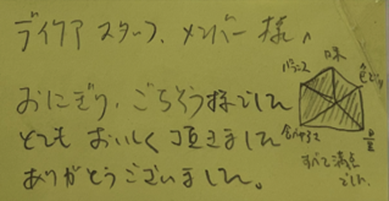 デイケア スタッフ、メンバー 様へ
おにぎり、ごちそう様でした
とても おいしく 頂きました
ありがとうございました。
味
バランス
食べやすさ
量
すべて満点
でした